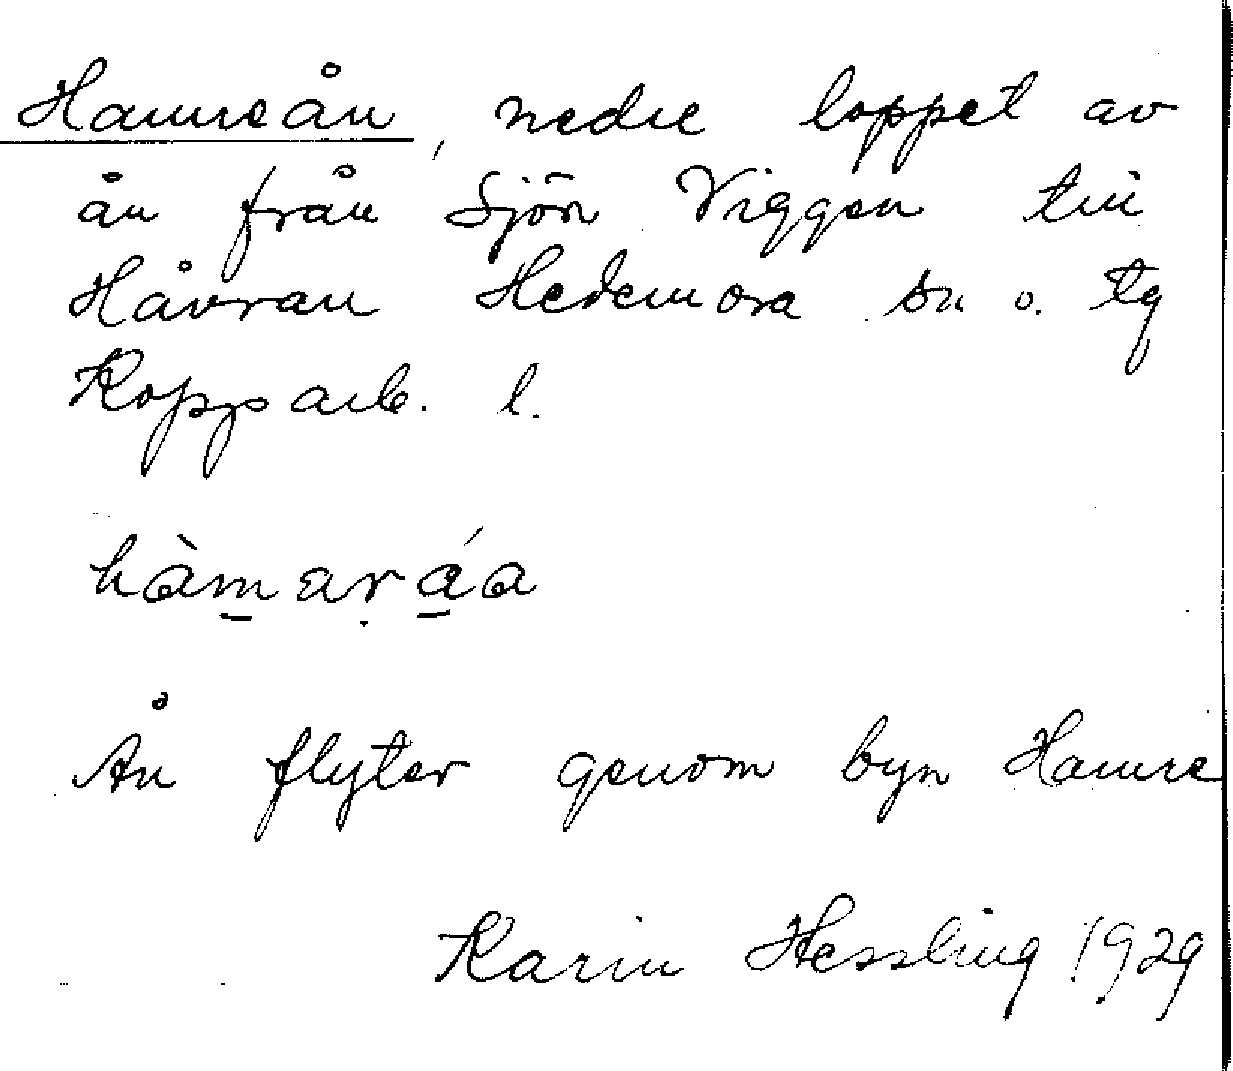 Hamreån, nedre loppet av
ån från sjön Viggen till
Håvran Hedemora sn o. tg
Kopparb. l.
hàmaṛáa
Ån flyter genom byn Hamre
Karin Hessling 1929